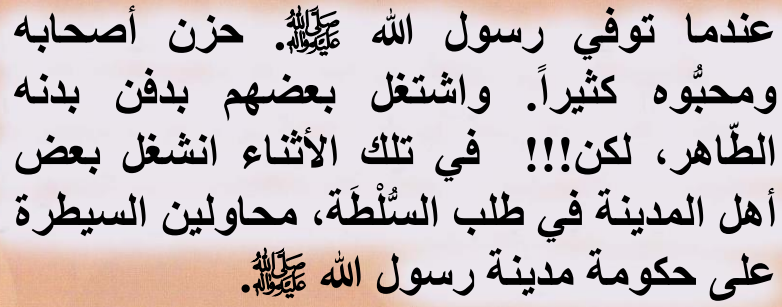 عندما توفي رسول الله ﷺ. حزن أصحابه
ومحبُّوه كثيراً. واشتغل بعضهم بدفن بدنه
الطّاهر، لكن!!! في تلك الأثناء انشغل بعض
أهل المدينة في طلب السُّلْطَة، محاولين السيطرة
على حكومة مدينة رسول الله ﷺ.